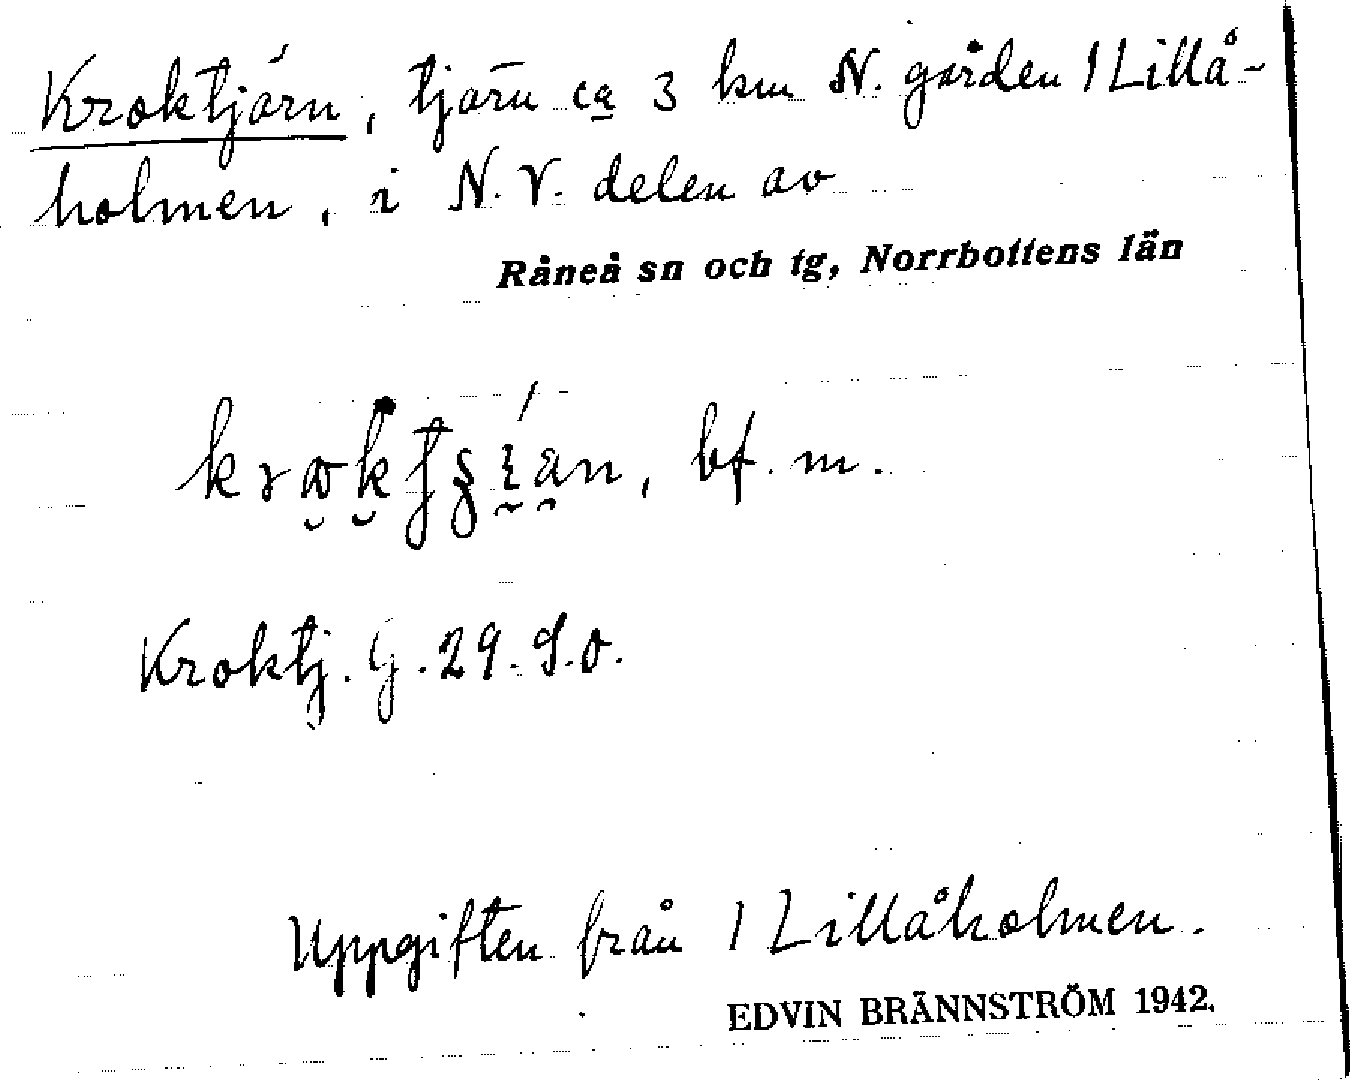 Kroktjärn, tjärn ca 3 km N. gården 1 Lillå-
holmen, i N.V. delen av
Råneå sn och tg, Norrbottens län
bf. m.
Kroktj. G. 29. S.o.
Uppgiften från 1 Lillåholmen.
EDVIN BRÄNNSTRÖM 1942.